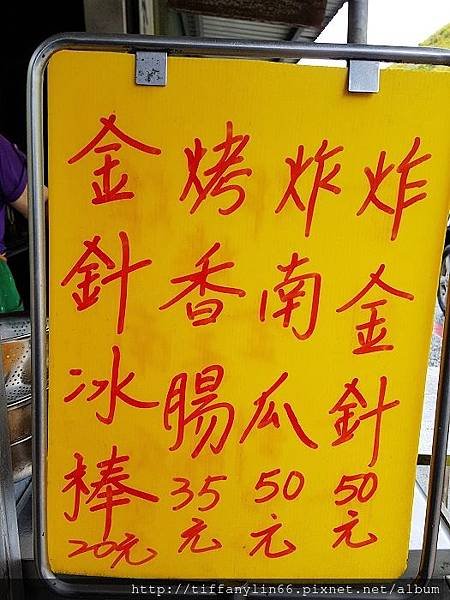 炸金針50元
炸南瓜50元
烤香腸35元
金針冰棒20元
http://tiffanylin66.pixnet.net/album